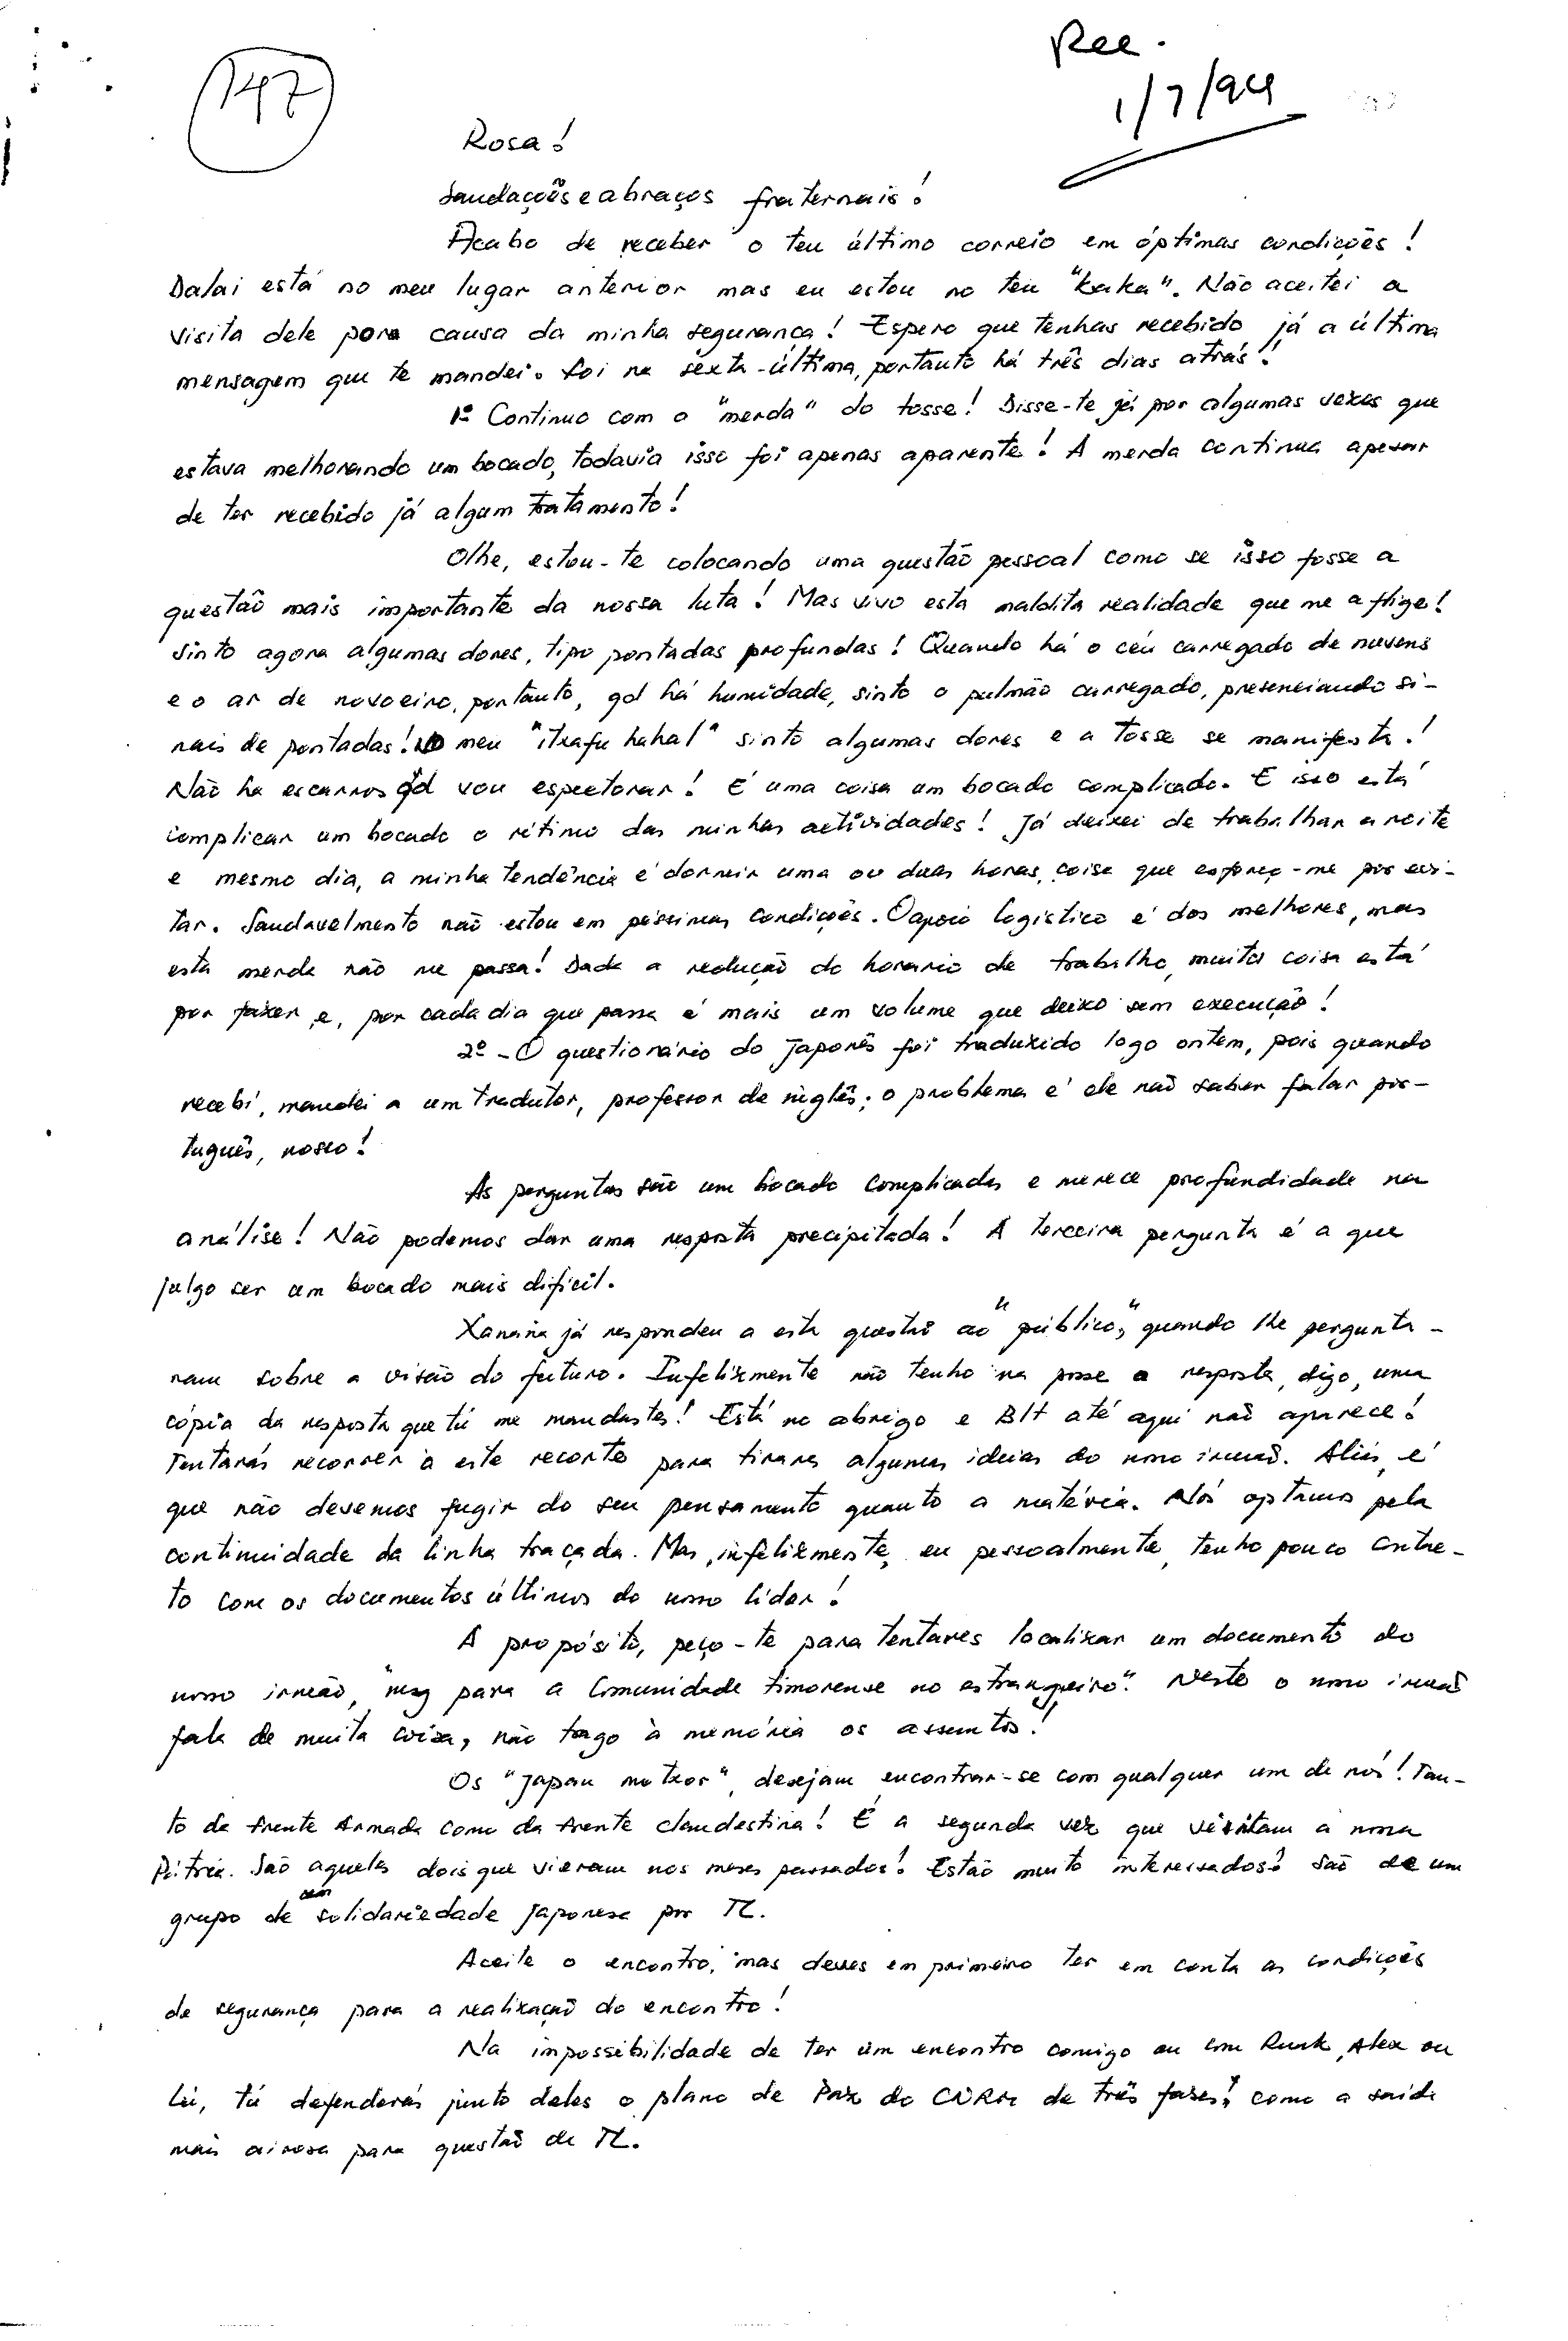 147
Rec.
1/7/94
Rosa!
Saudações e abraços fraternais!
Acabo de receber o teu último correio em óptimas condições!
Dalai está no meu lugar anterior mas eu estou no teu "kaka". Não aceitei a
visita dele por causa da minha segurança! Espero que tenhas recebido já a última
mensagem que te mandei. Foi na sexta-última, portanto há três dias atrás!
1º Continuo com o "merda" do tosse! Disse-te já por algumas vezes que
estava melhorando um bocado, todavia isso foi apenas aparente! A merda continua apesar
de ter recebido já algum tratamento!
Olhe, estou-te colocando uma questão pessoal como se isso fosse a
questão mais importante da nossa luta! Mas vivo esta maldita realidade que me aflige!
Sinto agora algumas dores, tipo pontadas profundas! Quando há o céu carregado de nuvens
e o ar de novoeiro, portanto, qd há humidade, sinto o pulmão carregado, presenciando si-
nais de pontadas! No meu "itrafu kakal" sinto algumas dores e a tosse se manifesta!
Não ha escarros qd vou espectorar! É uma coisa um bocado complicado. E isso está
complicar um bocado o rítimo das minhas actividades! Já deixei de trabalhar a noite
e mesmo dia, a minha tendência é dormir uma ou duas horas, coisa que esforço-me por evi-
tar. Saudavelmente não estou em péssimas condições. O apoio logístico é dos melhores, mas
esta merda não me passa! Dada a redução do horario de trabalho, muita coisa está
por fazer e, por cada dia que passa é mais um volume que deixo sem execução!
2º - O questionário do Japonês foi traduzido logo ontem, pois quando
recebi, mandei a um tradutor, professor de inglês; o problema é ele não saber falar por-
tuguês, nosso!
As perguntas são um bocado complicadas e merece profundidade na
análise! Não podemos dar uma resposta precipitada! A terceira pergunta é a que
julgo ser um bocado mais difícil.
Xanana já respondeu a esta questão ao "público", quando lhe pergunta-
ram sobre a visão do futuro. Infelizmente não tenho na posse a resposta, digo, uma
cópia da resposta que tú me mandastes! Está no abrigo e BH até aqui não aparece!
Tentarás recorrer à este recorte para tirares algumas ideias do nosso irmão. Aliás, é
que não devemos fugir do seu pensamento quanto a matéria. Nós optamos pela
continuidade da linha traçada. Mas, infelizmente, eu pessoalmente, tenho pouco contac-
to com os documentos últimos do nosso líder!
A propósito, peço-te para tentares localizar um documento do
nosso irmão, "msg para a Comunidade timorense no estrangeiro". Neste o nosso irmão
fala de muita coisa, não trago à memória os assuntos!
Os "Japau matxor", desejam encontrar-se com qualquer um de nós! Tan-
to da Frente Armada como da Frente clandestina! É a segunda vez que visitam a nossa
Pátria. São aqueles dois que vieram nos meses passados! Estão muito interessados! São de um
grupo de solidariedade japonesa por TL.
Aceite o encontro, mas deves em primeiro ter em conta as condições
de segurança para a realização do encontro!
Na impossibilidade de ter um encontro comigo ou com Ruak, Alex ou
Lú, tú defenderás junto deles o plano de Paz do CNRM de três fases, como a saída
mais airosa para questão de TL.